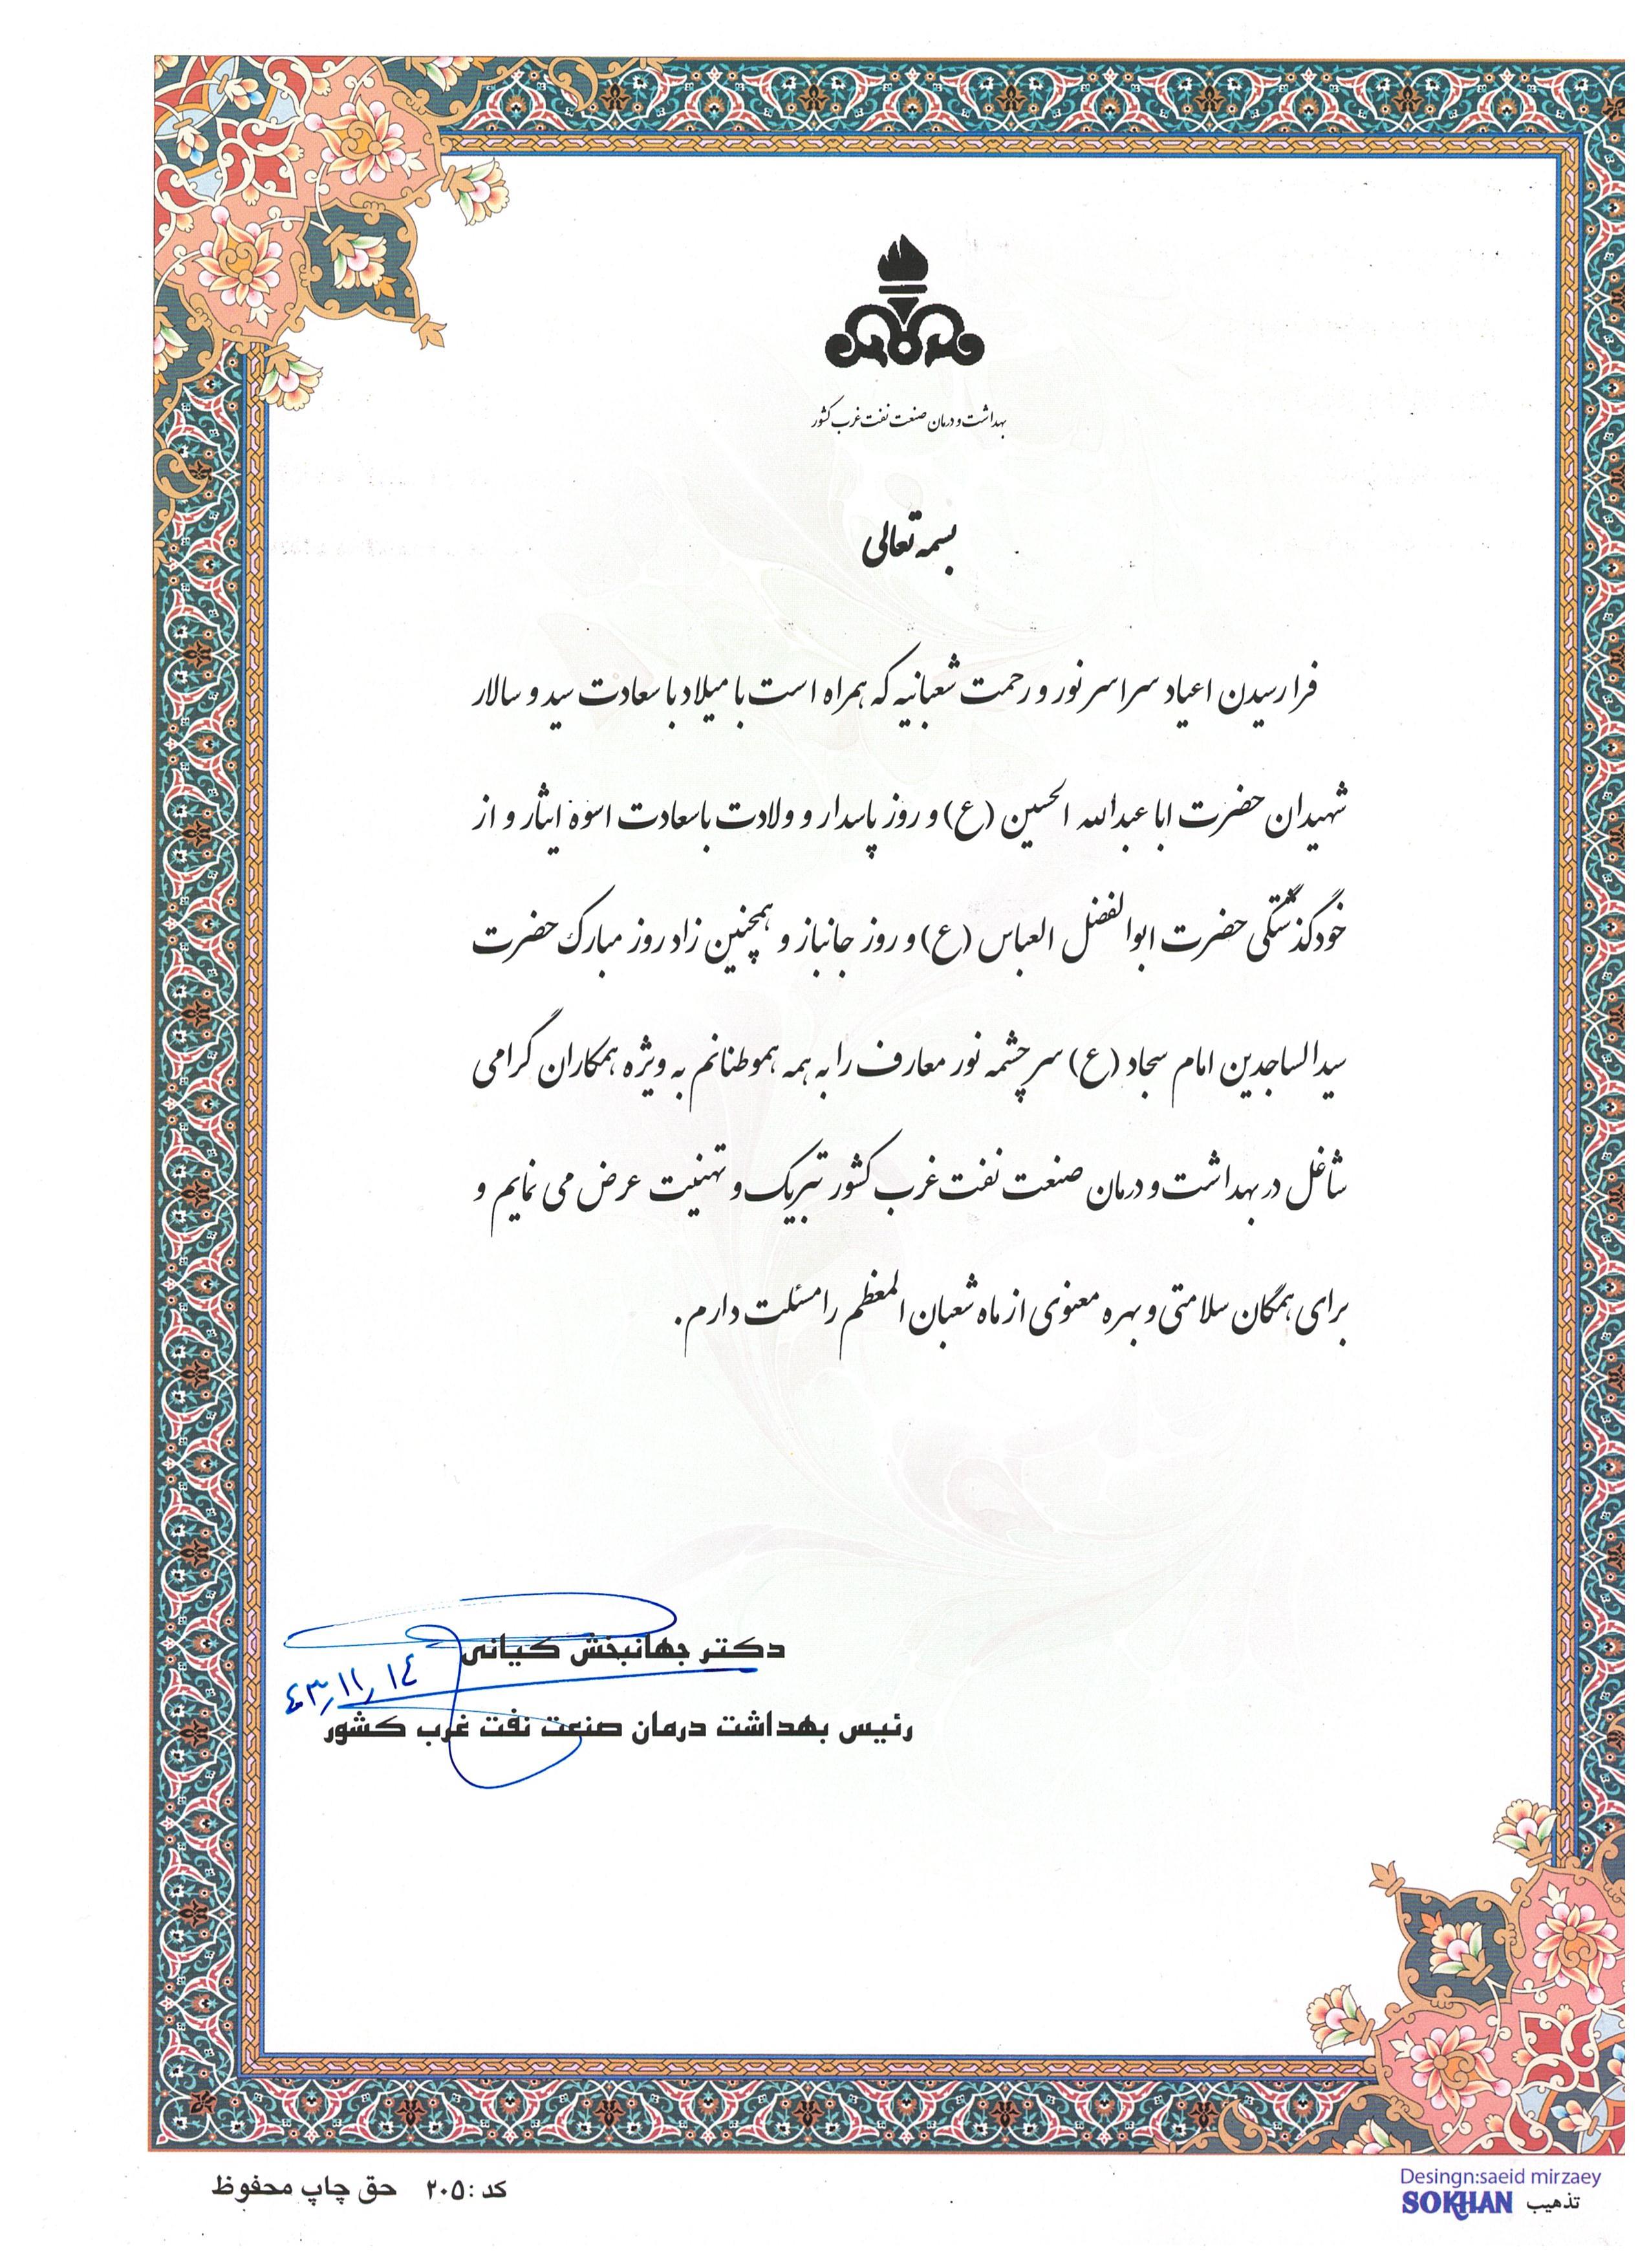 بهداشت و درمان صنعت نفت غرب کشور
بسمه تعالی
فرا رسیدن اعیاد سراسر نور و رحمت شعبانیه که همراه است با میلاد با سعادت سید و سالار
شهیدان حضرت ابا عبدالله الحسین (ع) و روز پاسدار و ولادت باسعادت اسوه ایثار و از
خودگذشتگی حضرت ابوالفضل العباس (ع) و روز جانباز و همچنین زاد روز مبارک حضرت
سیدالساجدین امام سجاد (ع) سرچشمه نور معارف را به همه هموطنانم به ویژه همکاران گرامی
شاغل در بهداشت و درمان صنعت نفت غرب کشور تبریک و تهنیت عرض می نمایم و
برای همگان سلامتی و بهره معنوی از ماه شعبان المعظم را مسئلت دارم.
دکتر جهانبخش کیانی
۴۰۳/۱۱/۱۴
رئیس بهداشت درمان صنعت نفت غرب کشور
کد : ۲۰۵ حق چاپ محفوظ
Desingn:saeid mirzaey
تذهیب SOKHAN